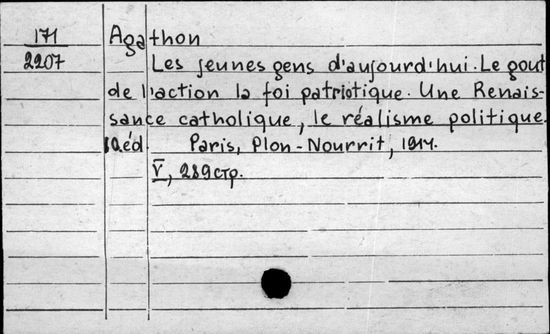 171 Agathon
2207 Les jeunes gens d'aujourd'hui. Le gout
de l'action la foi patriotique. Une Renais-
sance catholique, le réalisme politique.
10éd. Paris, Plon-Nourrit, 1914.
V, 289 стр.